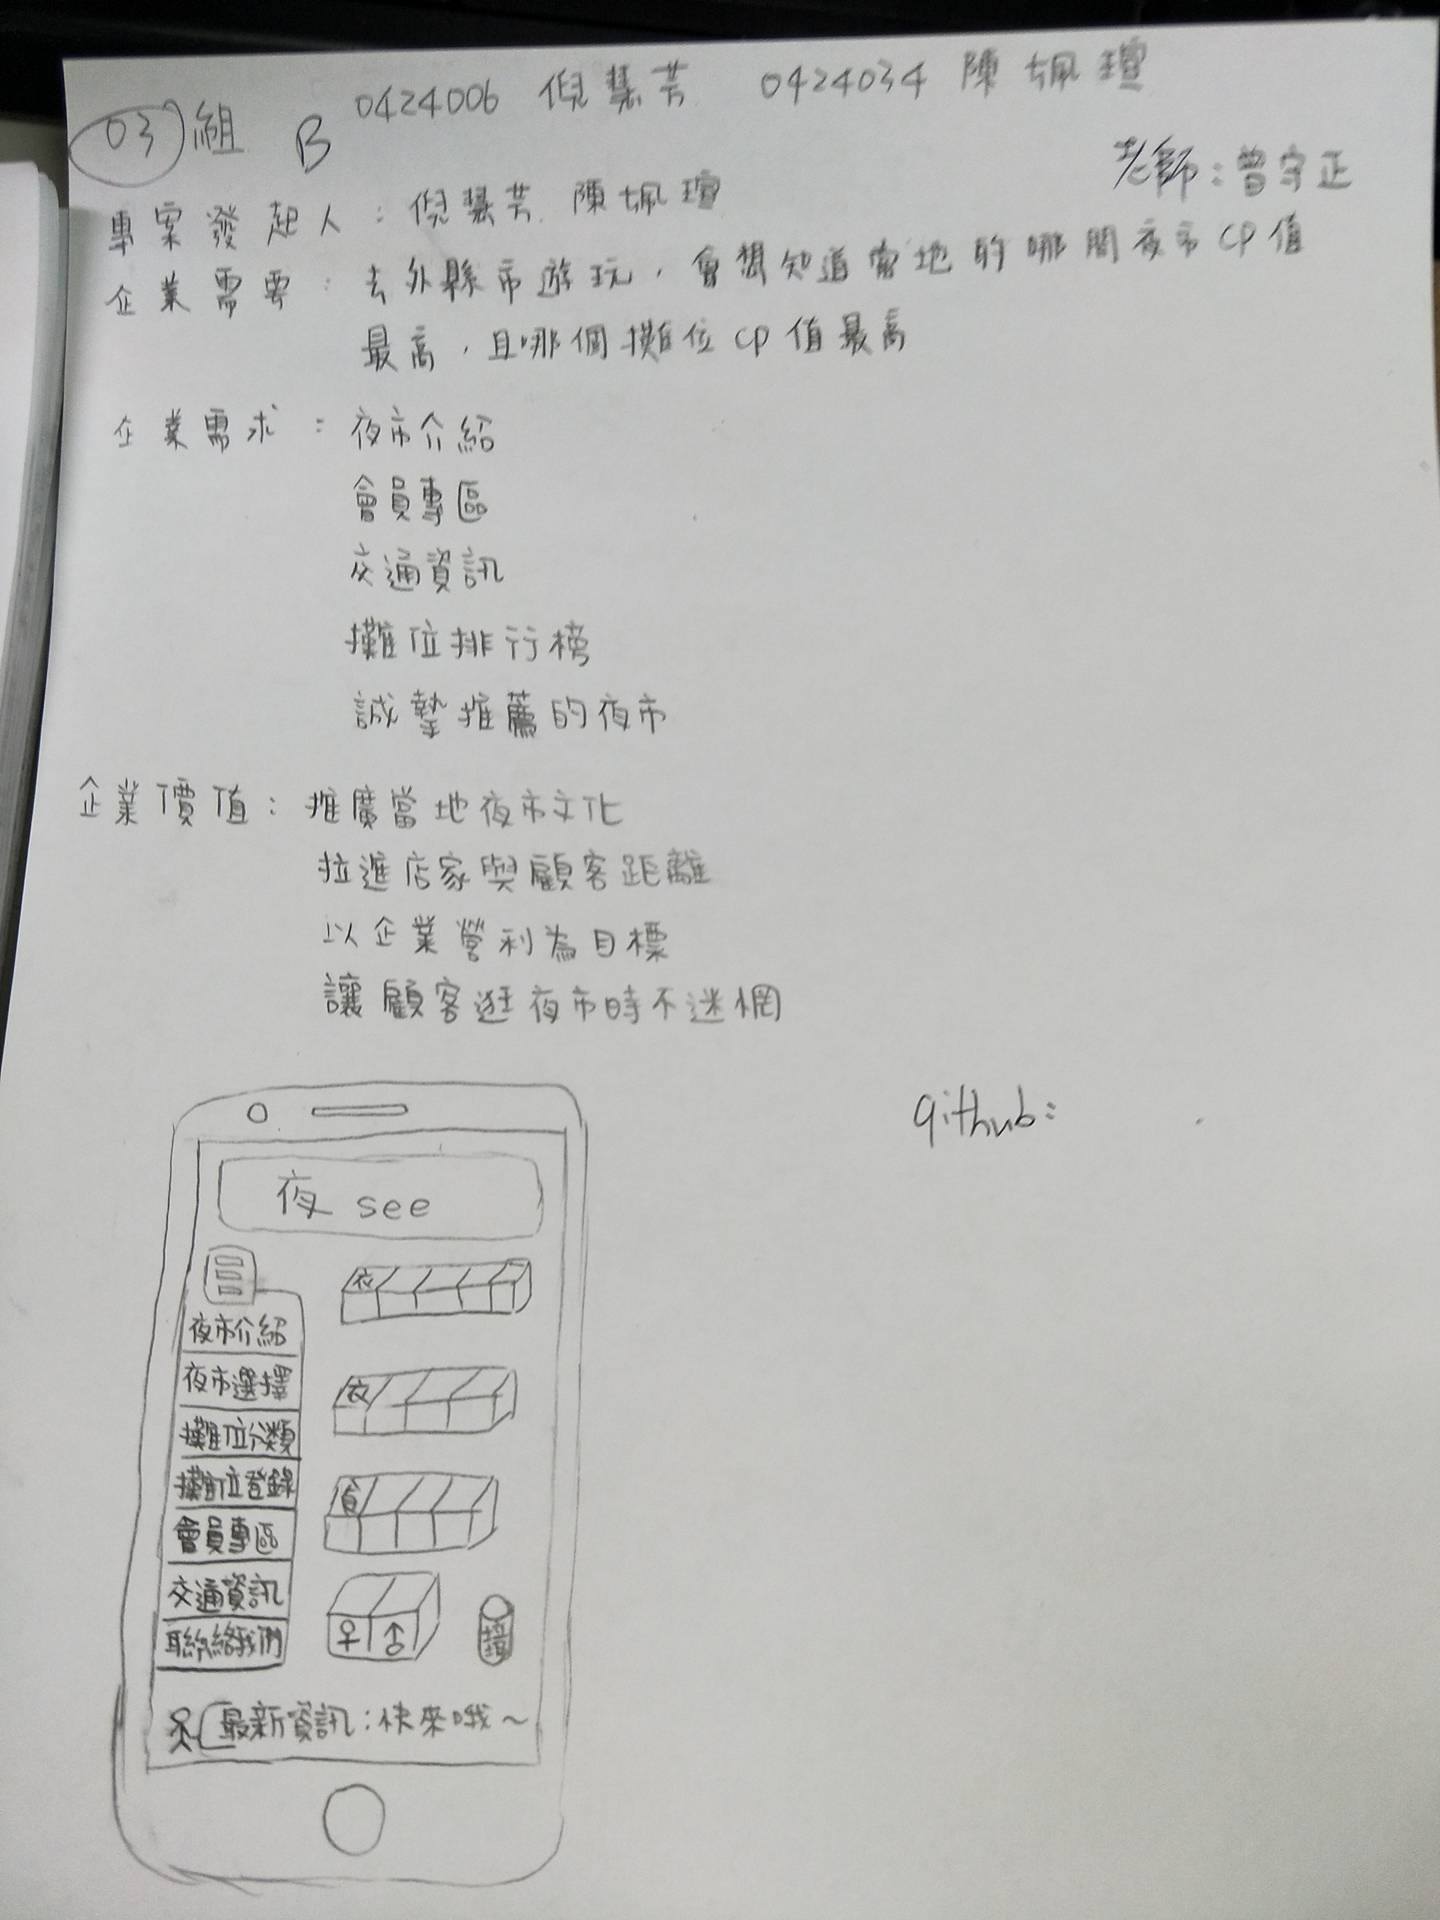 03組 B 0424006 倪慧芳 0424034 陳珮瑄
老師:曾守正
專案發起人:倪慧芳 陳珮瑄
企業需要:去外縣市遊玩,會想知道當地的哪間夜市CP值
最高,且哪個攤位CP值最高
企業需求:夜市介紹
會員專區
交通資訊
攤位排行榜
誠摯推薦的夜市
企業價值:推廣當地夜市文化
拉進店家與顧客距離
以企業營利為目標
讓顧客逛夜市時不迷惘
github:
夜 see
夜市介紹
夜市選擇
攤位分類
攤位登錄
會員專區
交通資訊
聯絡我們
衣
衣
食
♀ ♂
最新資訊:快來哦~